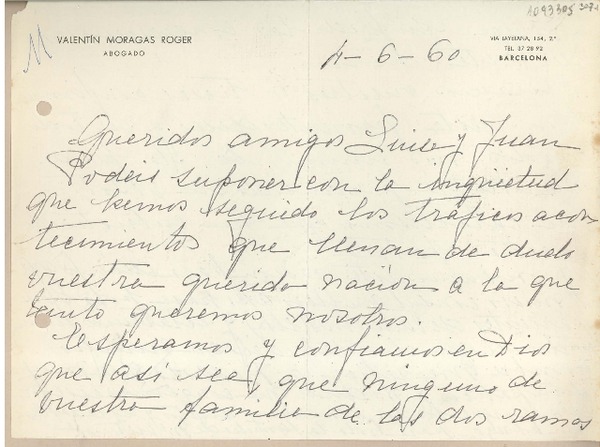 1093305 307-1
M
VALENTÍN MORAGAS ROGER
ABOGADO
VIA LAYETANA, 154, 2.º
TEL. 37 28 92
BARCELONA
4-6-60
Queridos amigos Luise y Juan
Podeis suponer con la inquietud
que hemos seguido los tráficos acon
tecimientos que llenan de duelo
vuestra querida nación a la que
tanto queremos nosotros.
Esperamos y confiamos en Dios
que así sea, que ninguno de
vuestra familia de las dos ramas